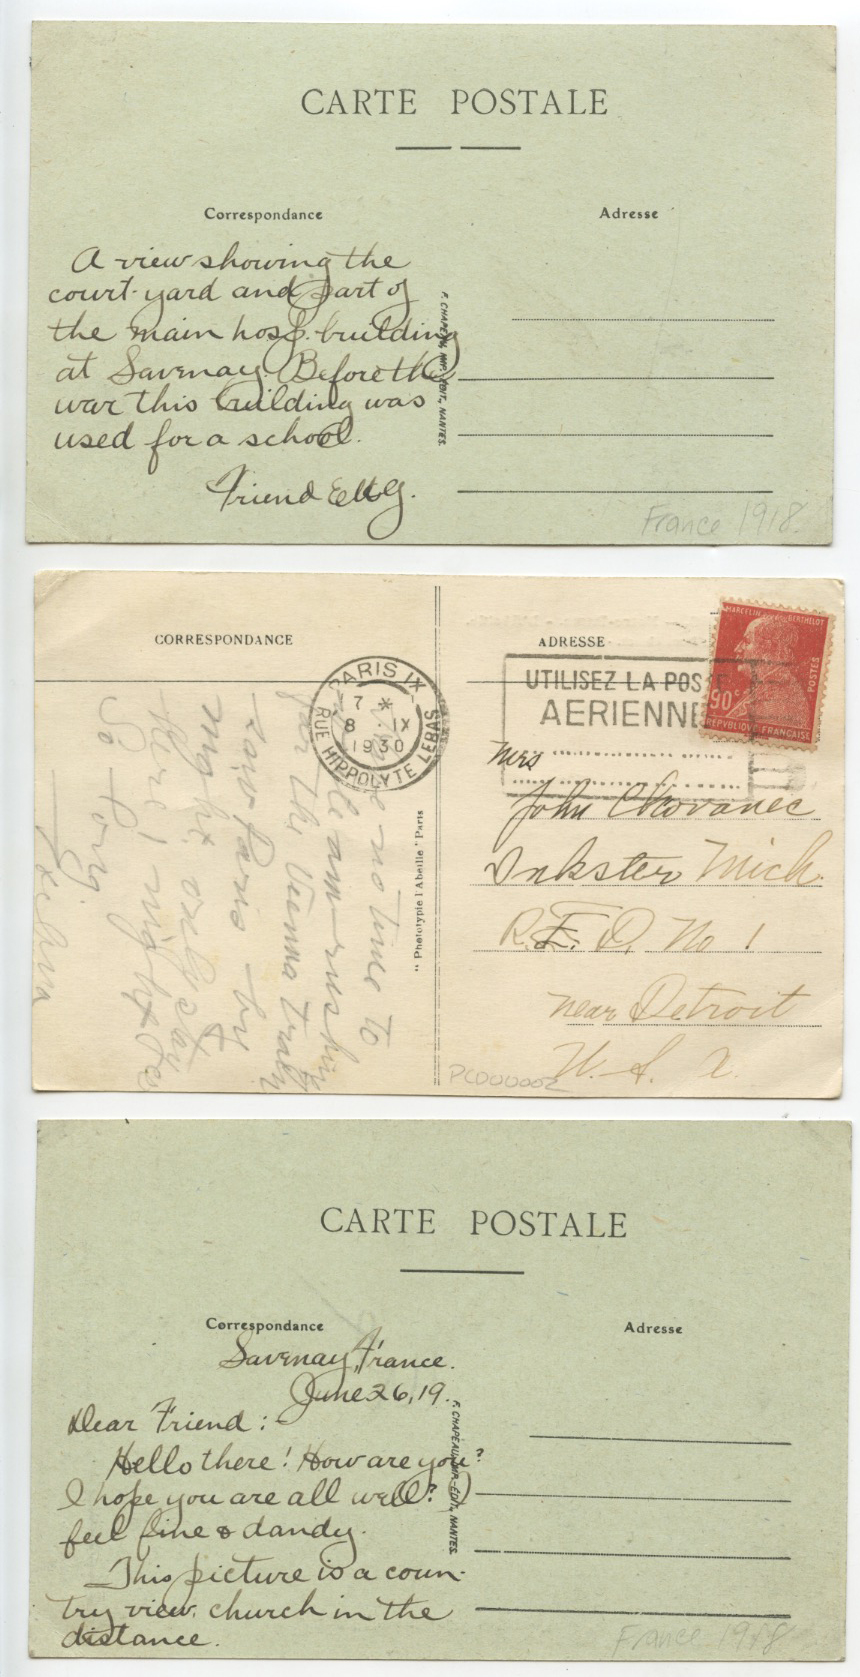 CARTE POSTALE
Correspondance
Adresse
A view showing the
court-yard and part of
the main hosp. building
at Savenay. Before the
war this building was
used for a school.
Friend
F. CHAPEAU, IMP.-ÉDIT., NANTES.
France 1918
CORRESPONDANCE
ADRESSE
MARCELIN BERTHELOT
POSTES
90c
REPVBLIQVE FRANÇAISE
UTILISEZ LA POSTE
AERIENNE
PARIS IX
17 *
8 IX
1930
RUE HIPPOLYTE LEBAS
Mrs
John
Inkster Mich.
R.F.D. No 1
near Detroit
U. S. A.
PC000002
"Phototypie l'Abeille" Paris
no time to
I am rushing
for the Vienna train
Paris by
night, only stay
here 1 night & day
So long.
CARTE POSTALE
Correspondance
Adresse
Savenay, France.
June 26, 19.
Dear Friend:-
Hello there! How are you?
I hope you are all well? I
feel fine & dandy.
This picture is a coun-
try view. church in the
distance.
F. CHAPEAU, IMP.-ÉDIT., NANTES.
France 1918